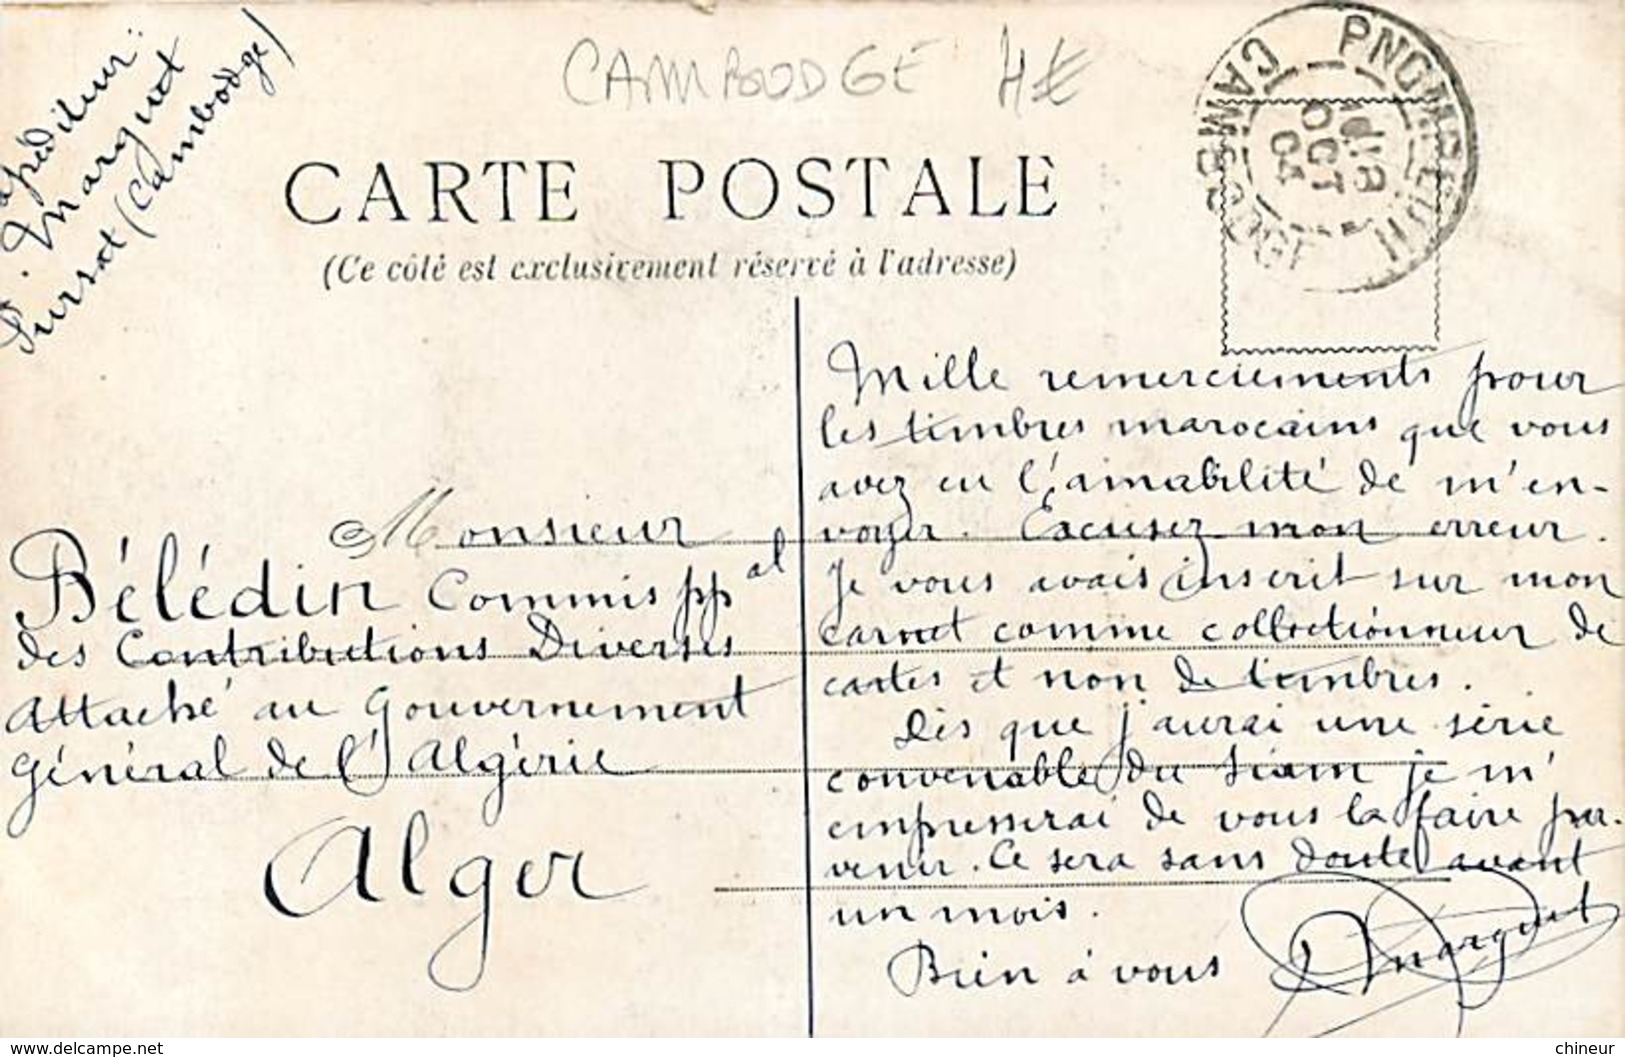 Expéditeur:
Marquet
Pursat (Cambodge)
CAMBODGE 4€
PNOMPENH
CAMBODGE
OCT
04
CARTE POSTALE
(Ce côté est exclusivement réservé à l'adresse)
Monsieur
Bélédin Commis ppal
des Contributions Diverses
Attaché au Gouvernement
Général de l'Algérie
Alger
Mille remerciements pour
les timbres marocains que vous
avez eu l'amabilité de m'en-
voyer. Excusez mon erreur.
Je vous avais inscrit sur mon
carnet comme collectionneur de
cartes et non de timbres.
Dès que j'aurai une série
convenable du Siam je m'
empresserai de vous la faire par-
venir. Ce sera sans doute avant
un mois.
Bien à vous Marquet
www.delcampe.net
chineur